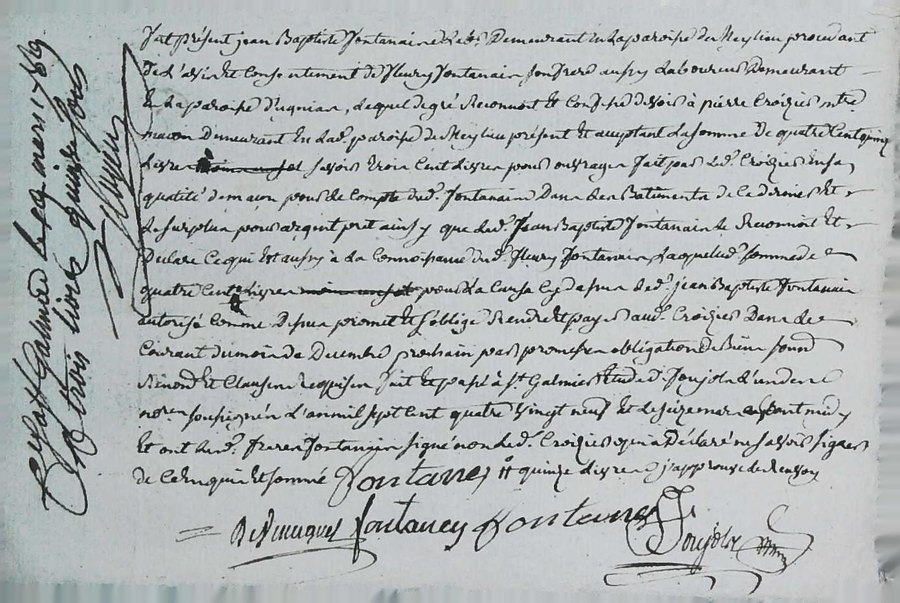 fait présent jean Baptiste fontanaire led. Demeurant en la paroisse de Meylieu procedant
De l'avis et Consentement de fleury fontanaire son frere aussy Laboureur Demeurant
En la paroisse d'uguias, Lequel degré Reconnoit et Confesse devoir à pierre Croizier mtre
macon Demeurant en lad. paroisse de Meylieu présent et acceptant La somme De quatre Cent quinze
Livres savoir trois Cent Livres pour ouvrages fait par led. Croizier en sa
qualité de maçon pour le Compte dud. fontanaire Dans des Batiments de Ce dernier Et
Le surplus pour argent pret ainsy que led. Jean Baptiste fontanaire le Reconnoit Et
Déclare Ce qui est aussy à la Connoissance dud. fleury fontanaire Laquelle somme de
quatre Cent Livres pour La Cause Cy dessus led. jean Baptiste fontanaire
autorisé Comme Dessus promet et s'oblige Rendre et payer aud. Croizier Dans le
Courant du mois de Decembre prochain par promesse obligation de Biens soumd
Renond et Clauses Requises fait et passé à St Galmier Etude de Poujols L'un des
nores soussignés L'an mil sept Cent quatre vingt neuf Et le seize mars avant midy
Et ont lesd. freres fontanaire signé non led. Croizier qui a Déclaré ne savoir signer
de Ce Enquis et sommé fontanes # quinze Livres j'approuve le Renvoy
fontaney fontanes
Poujols
St Galmier le 29 mars 1789
trois livres quinze sous